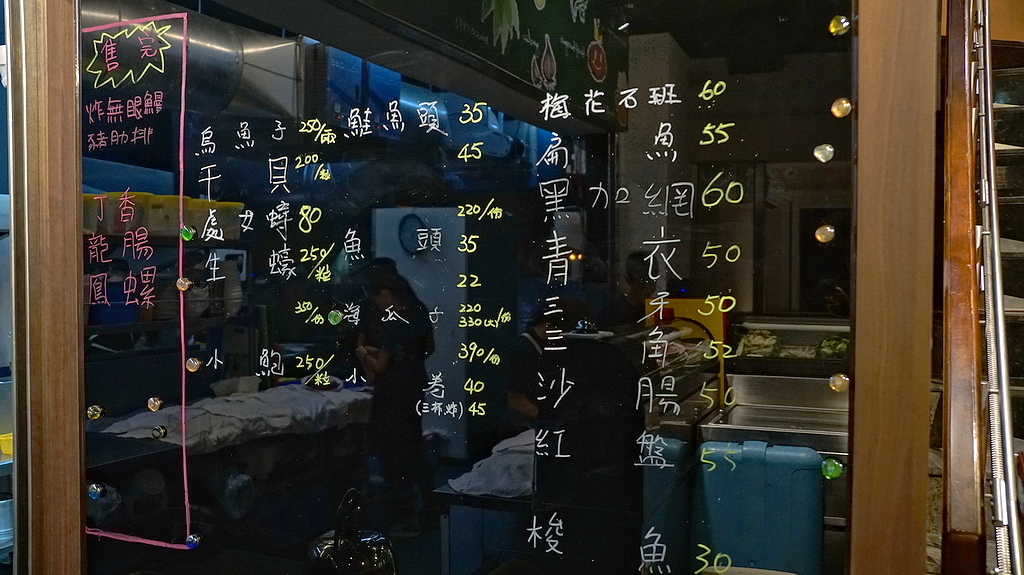 售完
炸無眼鰻
豬肋排
丁香
龍腸
鳳螺
烏魚子 250/兩
干貝 200/粒
處女蟳 80
生蠔 250/粒
350/份
小鮑 250/粒
鮭魚頭 35
45
220/份
魚頭 35
22
海瓜子 220
330(大)/份
390/份
小卷 40
(三杯炸) 45
梅花石班 60
扁魚 55
黑加網 60
青衣 50
三牙 50
三角 52
沙腸 50
紅盤 55
梭魚 30